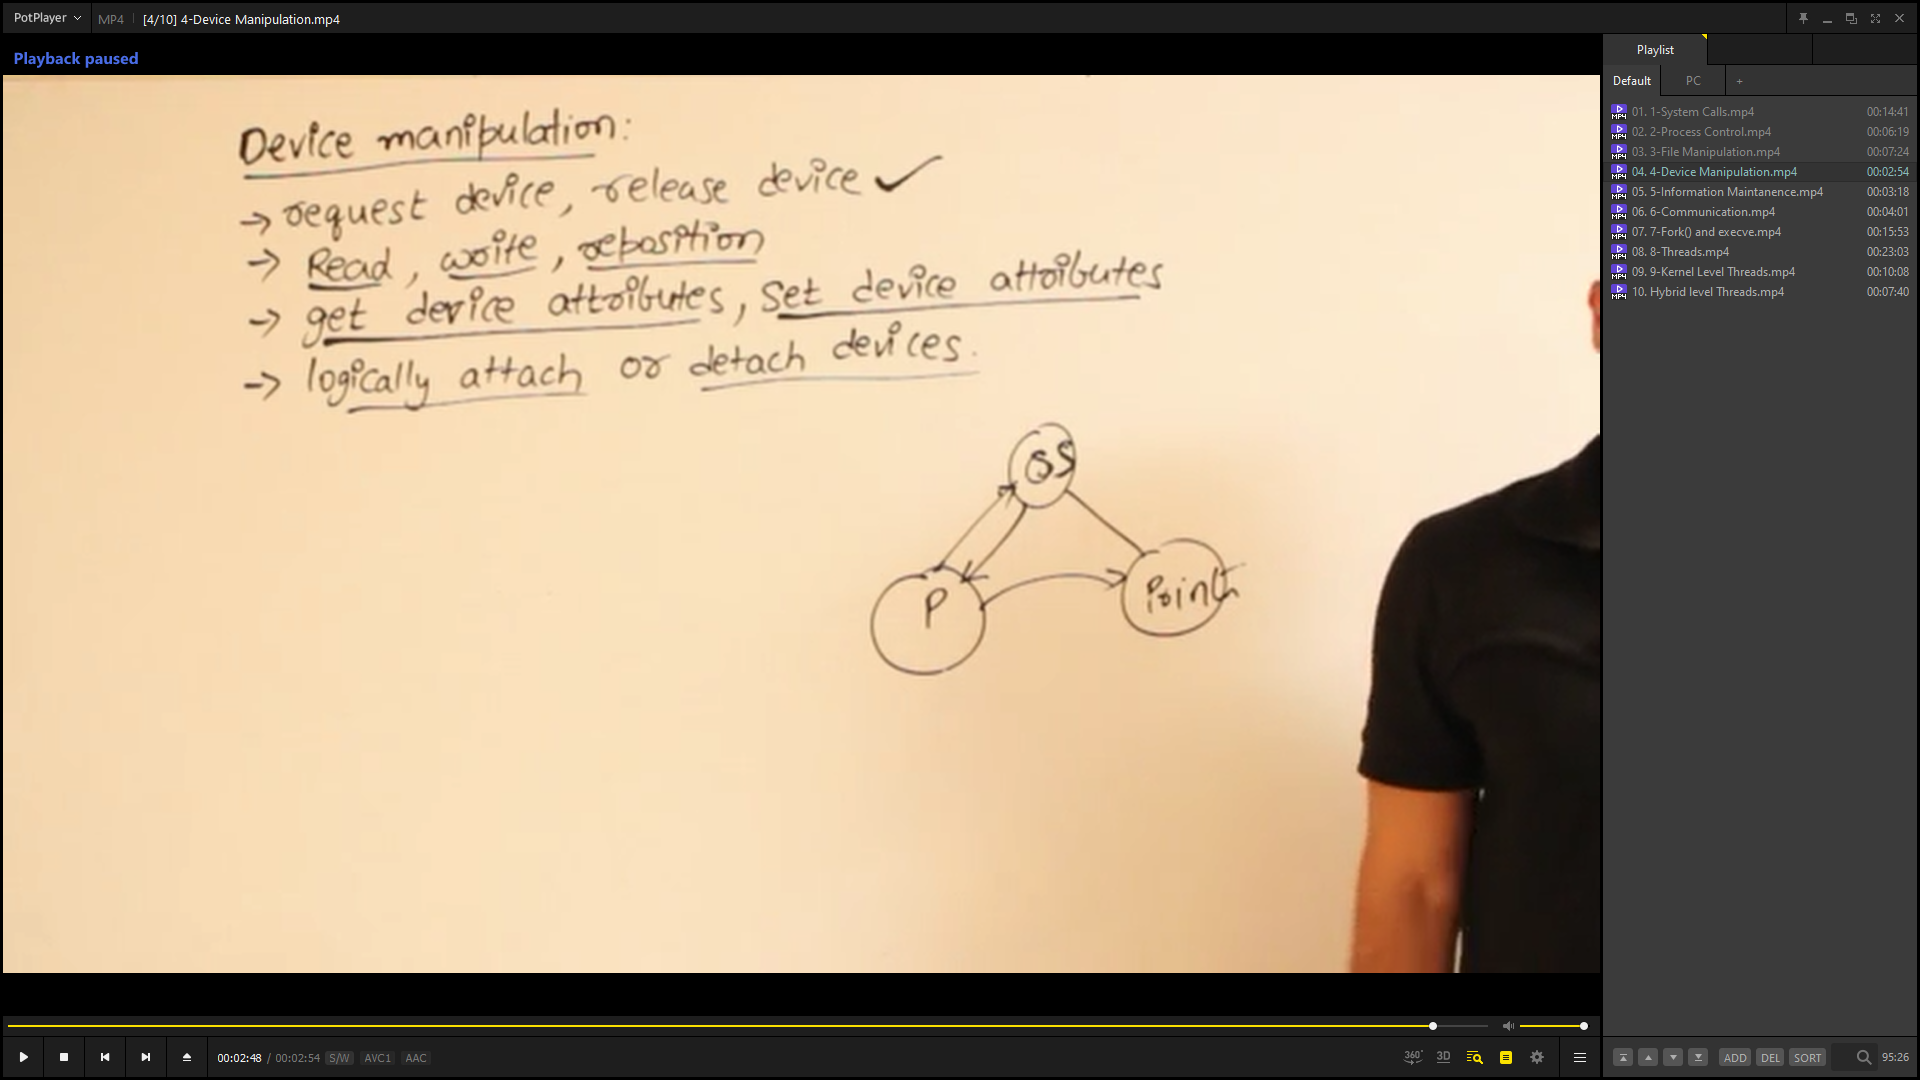 PotPlayer
MP4
[4/10] 4-Device Manipulation.mp4
Playback paused
Device manipulation:
→ request device, release device ✓
→ Read, write, reposition
→ get device attributes, Set device attributes
→ logically attach or detach devices.
OS
P
Print
00:02:48 / 00:02:54 S/W AVC1 AAC
360° 3D
Playlist
Default PC +
01. 1-System Calls.mp4 00:14:41
02. 2-Process Control.mp4 00:06:19
03. 3-File Manipulation.mp4 00:07:24
04. 4-Device Manipulation.mp4 00:02:54
05. 5-Information Maintanence.mp4 00:03:18
06. 6-Communication.mp4 00:04:01
07. 7-Fork() and execve.mp4 00:15:53
08. 8-Threads.mp4 00:23:03
09. 9-Kernel Level Threads.mp4 00:10:08
10. Hybrid level Threads.mp4 00:07:40
ADD DEL SORT 95:26